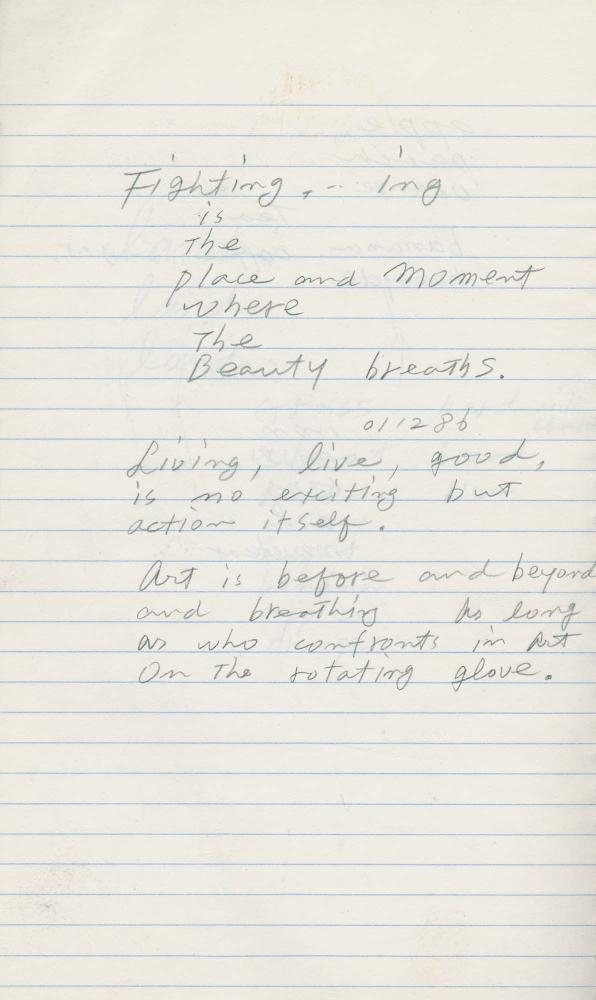 Fighting, -- ing
is
The
place and Moment
where
The
Beauty breaths.
011286
Living, live, good,
is no exciting but
action itself.
Art is before and beyond
and breathing As long
as who confronts in Art
On The rotating glove.